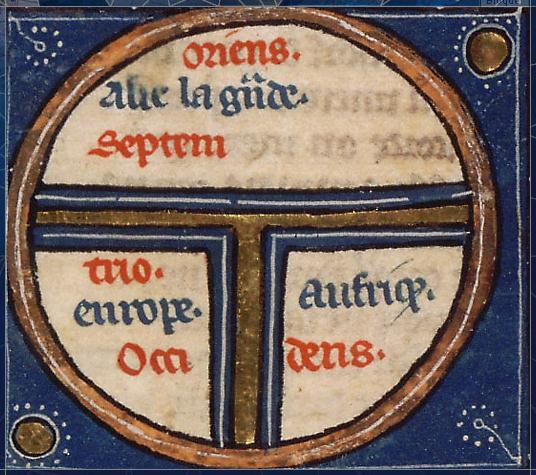 oriens.
Asie la grãde.
Septem
trio.
europe.
aufriq̃.
Occi
dens.